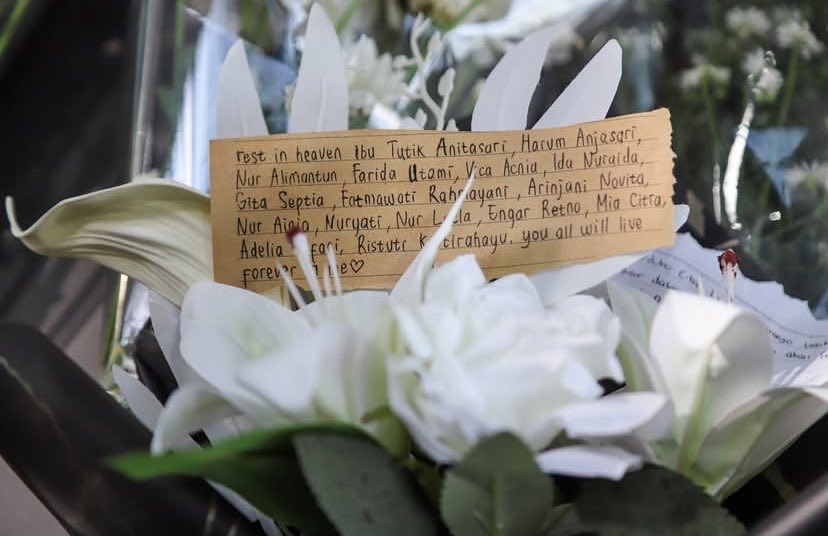 rest in heaven Ibu Tutik Anitasari, Harum Anjasari,
Nur Alimantun, Farida Utami, Vica Acnia, Ida Nuraida,
Gita Septia, Fatmawati Rahmayani, Arinjani Novita,
Nur Ainia, Nuryati, Nur Laela, Engar Retno, Mia Citra,
Adelia Ristuti you all will live
forever in me♡